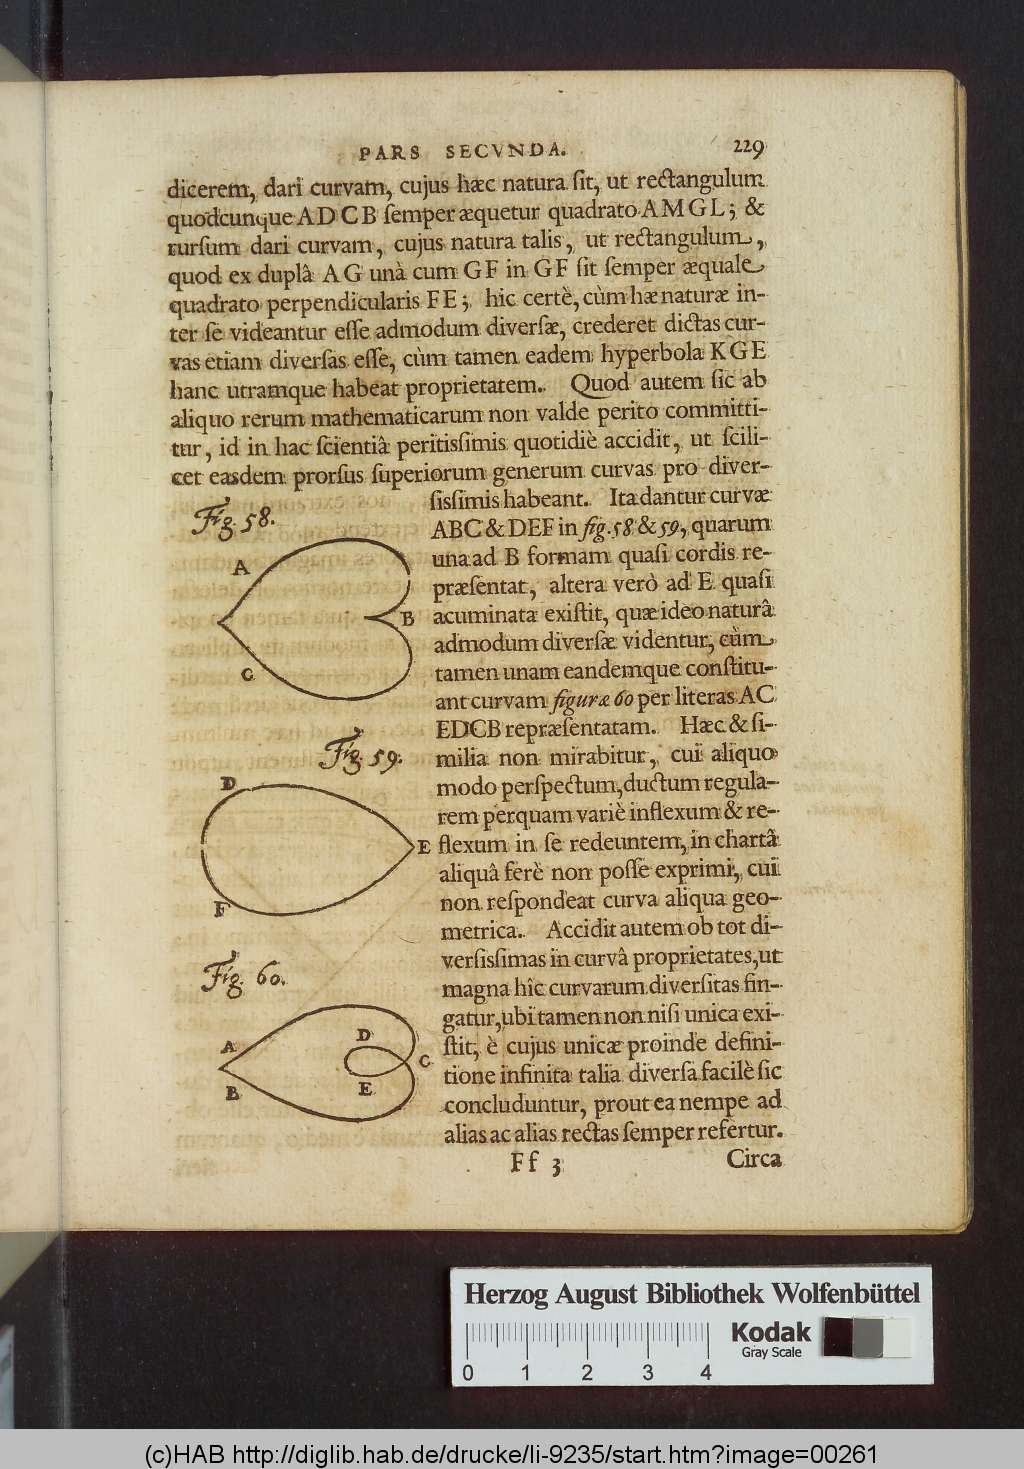 PARS SECVNDA. 229
dicerem, dari curvam, cujus hæc natura ſit, ut rectangulum
quodcunque ADCB ſemper æquetur quadrato AMGL; &
rurſum dari curvam, cujus natura talis, ut rectangulum,
quod ex duplâ AG unà cum GF in GF ſit ſemper æquale
quadrato perpendicularis FE; hic certè, cùm hæ naturæ in-
ter ſe videantur eſſe admodum diverſæ, crederet dictas cur-
vas etiam diverſas eſſe, cùm tamen eadem hyperbola KGE
hanc utramque habeat proprietatem. Quod autem ſic ab
aliquo rerum mathematicarum non valde perito committi-
tur, id in hac ſcientiâ peritisſimis quotidiè accidit, ut ſcili-
cet easdem prorſus ſuperiorum generum curvas pro diver-
ſisſimis habeant. Ita dantur curvæ
ABC & DEF in fig. 58 & 59, quarum
una ad B formam quaſi cordis re-
præſentat, altera verò ad E quaſi
acuminata exiſtit, quæ ideo naturâ
admodum diverſæ videntur, cùm
tamen unam eandemque conſtitu-
ant curvam figuræ 60 per literas AC
EDCB repræſentatam. Hæc & ſi-
milia non mirabitur, cui aliquo
modo perſpectum, ductum regula-
rem perquam variè inflexum & re-
flexum in ſe redeuntem, in chartâ
aliquâ ferè non poſſe exprimi, cui
non reſpondeat curva aliqua geo-
metrica. Accidit autem ob tot di-
verſisſimas in curvâ proprietates, ut
magna hîc curvarum diverſitas fin-
gatur, ubi tamen non niſi unica exi-
ſtit, è cujus unicæ proinde defini-
tione infinita talia diverſa facilè ſic
concluduntur, prout ea nempe ad
alias ac alias rectas ſemper refertur.
Ff 3 Circa
Fig. 58.
A
B
C
Fig. 59.
D
E
F
Fig. 60.
A
D
C
E
B
Herzog August Bibliothek Wolfenbüttel
0 1 2 3 4
Kodak
Gray Scale
(c)HAB http://diglib.hab.de/drucke/li-9235/start.htm?image=00261